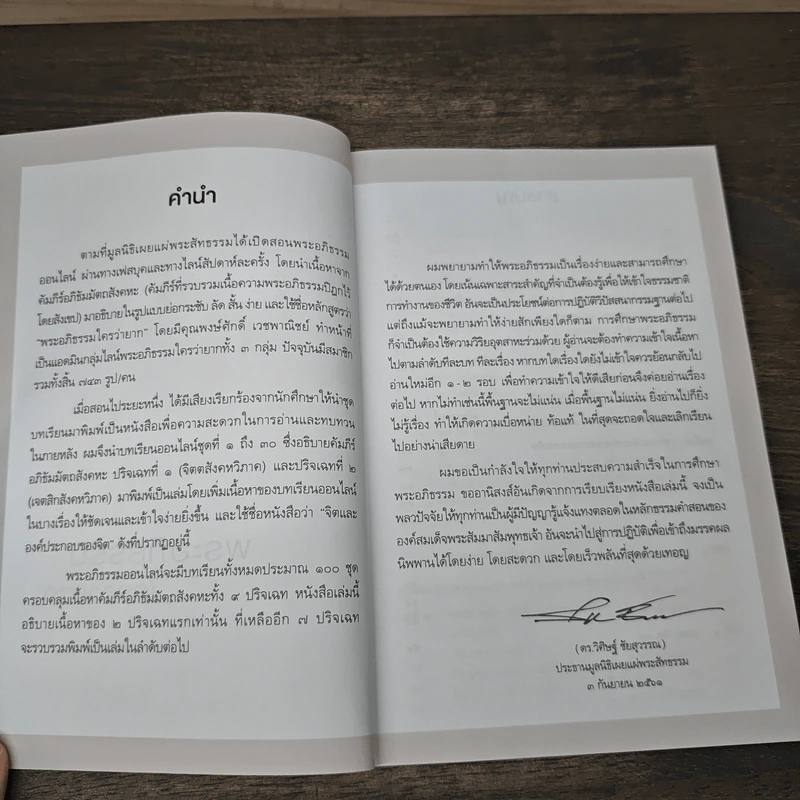 คำนำ
ตามที่มูลนิธิเผยแผ่พระสัทธรรมได้เปิดสอนพระอภิธรรม
ออนไลน์ ผ่านทางเฟสบุคและทางไลน์สัปดาห์ละครั้ง โดยนำเนื้อหาจาก
คัมภีร์อภิธัมมัตถสังคหะ (คัมภีร์ที่รวบรวมเนื้อความพระอภิธรรมปิฎกไว้
โดยสังเขป) มาอธิบายในรูปแบบย่อกระชับ ลัด สั้น ง่าย และใช้ชื่อหลักสูตรว่า
“พระอภิธรรมใครว่ายาก” โดยมีคุณพงษ์ศักดิ์ เวชพาณิชย์ ทำหน้าที่
เป็นแอดมินกลุ่มไลน์พระอภิธรรมใครว่ายากทั้ง ๓ กลุ่ม ปัจจุบันมีสมาชิก
รวมทั้งสิ้น ๗๔๓ รูป/คน
เมื่อสอนไประยะหนึ่ง ได้มีเสียงเรียกร้องจากนักศึกษาให้นำชุด
บทเรียนมาพิมพ์เป็นหนังสือเพื่อความสะดวกในการอ่านและทบทวน
ในภายหลัง ผมจึงนำบทเรียนออนไลน์ชุดที่ ๑ ถึง ๓๐ ซึ่งอธิบายคัมภีร์
อภิธัมมัตถสังคหะ ปริจเฉทที่ ๑ (จิตตสังคหวิภาค) และปริจเฉทที่ ๒
(เจตสิกสังคหวิภาค) มาพิมพ์เป็นเล่มโดยเพิ่มเนื้อหาของบทเรียนออนไลน์
ในบางเรื่องให้ชัดเจนและเข้าใจง่ายยิ่งขึ้น และใช้ชื่อหนังสือว่า “จิตและ
องค์ประกอบของจิต” ดังที่ปรากฏอยู่นี้
พระอภิธรรมออนไลน์จะมีบทเรียนทั้งหมดประมาณ ๑๐๐ ชุด
ครอบคลุมเนื้อหาคัมภีร์อภิธัมมัตถสังคหะทั้ง ๙ ปริจเฉท หนังสือเล่มนี้
อธิบายเนื้อหาของ ๒ ปริจเฉทแรกเท่านั้น ที่เหลืออีก ๗ ปริจเฉท
จะรวบรวมพิมพ์เป็นเล่มในลำดับต่อไป
ผมพยายามทำให้พระอภิธรรมเป็นเรื่องง่ายและสามารถศึกษา
ได้ด้วยตนเอง โดยเน้นเฉพาะสาระสำคัญที่จำเป็นต้องรู้เพื่อให้เข้าใจธรรมชาติ
การทำงานของชีวิต อันจะเป็นประโยชน์ต่อการปฏิบัติวิปัสสนากรรมฐานต่อไป
แต่ถึงแม้จะพยายามทำให้ง่ายสักเพียงใดก็ตาม การศึกษาพระอภิธรรม
ก็จำเป็นต้องใช้ความวิริยอุตสาหะร่วมด้วย ผู้อ่านจะต้องทำความเข้าใจเนื้อหา
ไปตามลำดับทีละบท ทีละเรื่อง หากบทใดเรื่องใดยังไม่เข้าใจควรย้อนกลับไป
อ่านใหม่อีก ๑-๒ รอบ เพื่อทำความเข้าใจให้ดีเสียก่อนจึงค่อยอ่านเรื่อง
ต่อไป หากไม่ทำเช่นนี้พื้นฐานจะไม่แน่น เมื่อพื้นฐานไม่แน่น ยิ่งอ่านไปก็ยิ่ง
ไม่รู้เรื่อง ทำให้เกิดความเบื่อหน่าย ท้อแท้ ในที่สุดจะถอดใจและเลิกเรียน
ไปอย่างน่าเสียดาย
ผมขอเป็นกำลังใจให้ทุกท่านประสบความสำเร็จในการศึกษา
พระอภิธรรม ขออานิสงส์อันเกิดจากการเรียบเรียงหนังสือเล่มนี้ จงเป็น
พลวปัจจัยให้ทุกท่านเป็นผู้มีปัญญารู้แจ้งแทงตลอดในหลักธรรมคำสอนของ
องค์สมเด็จพระสัมมาสัมพุทธเจ้า อันจะนำไปสู่การปฏิบัติเพื่อเข้าถึงมรรคผล
นิพพานได้โดยง่าย โดยสะดวก และโดยเร็วพลันที่สุดด้วยเทอญ
(ดร.วิศิษฐ์ ชัยสุวรรณ)
ประธานมูลนิธิเผยแผ่พระสัทธรรม
๓ กันยายน ๒๕๖๑